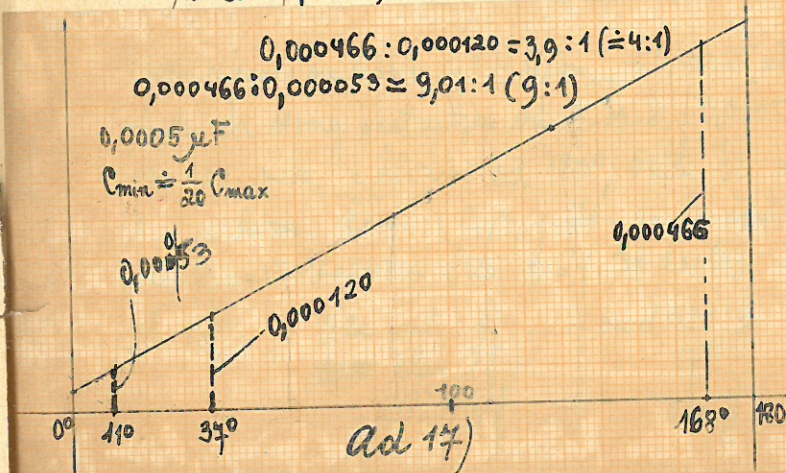 0,000466 : 0,000120 = 3,9 : 1 (≐ 4:1)
0,000466 : 0,000053 ≃ 9,01 : 1 (9:1)
0,0005 µF
Cmin ≐ 1/20 Cmax
0,000053
0,000120
0,000466
100
0° 11° 37° 168° 180
Ad 17)